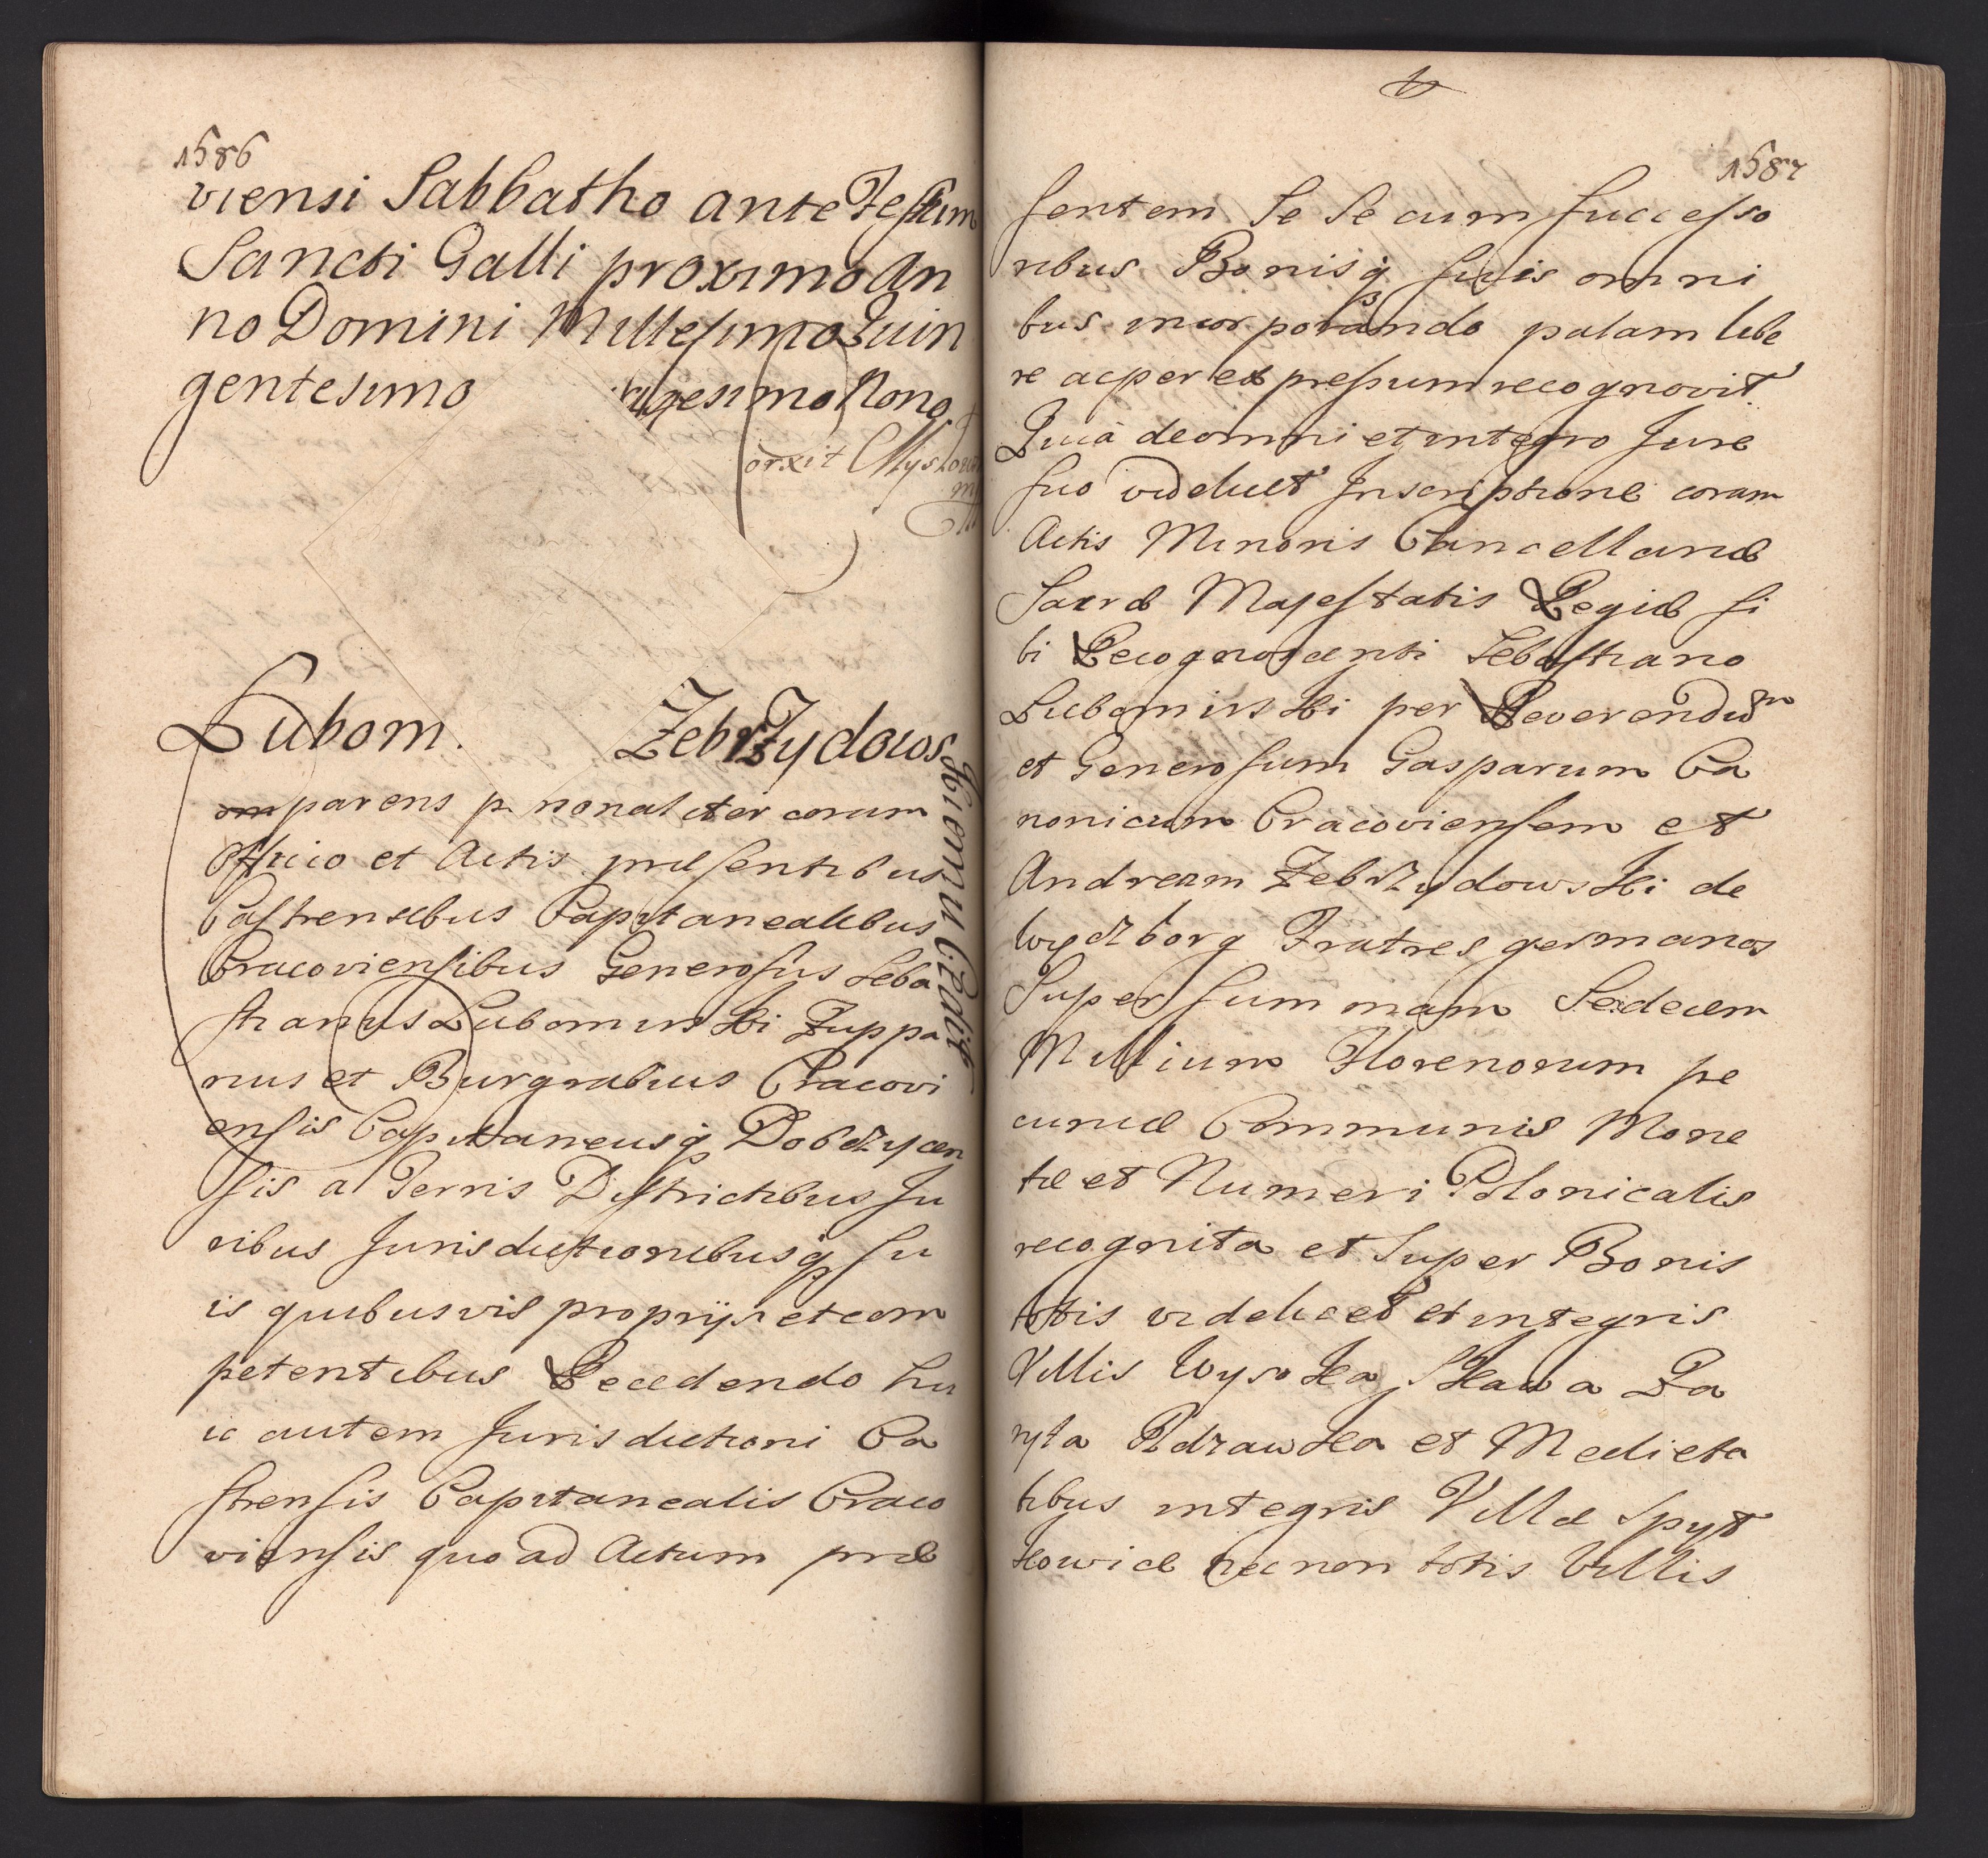 1586
viensi Sabbatho ante Festum
Sancti Galli proximo An
no Domini Millesimo Quin
gentesimo agesimo Nono
orxit Myszkow
Lubom. Zebrzydows
parens p. nonaliter coram
Officio et Actis præsentibus
Castrensibus Capitanealibus
Cracoviensibus Generosus Seba
stianus Lubomirski Zuppa
rius et Burgrabius Cracovi
ensis Capitaneusq Dobczycen
sis a Terris Districtibus Ju
ribus Jurisdictionibusq su
is quibusvis proprijs et com
petentibus Recedendo hu
ic autem Jurisdictioni Ca
strensis Capitanealis Craco
viensis quo ad Actum præ
1587
sentem Se Se cum successo
ribus Bonisq suis omni
bus incorporando palam libe
re ac per expressum recognovit
Quia de omni et integro Jure
suo videlicet Inscriptione coram
Actis Minoris Cancellariæ
Sacræ Majestatis Regiæ si
bi Recognoscenti Sebastiano
Lubomirski per Reverendum
et Generosum Gasparum Ca
nonicum Cracoviensem et
Andream Zebrzydowski de
Wydzborg Fratres germanos
Super summam Sedecem
Millium Florenorum pe
cuniæ Communis Mone
tæ et Numeri Polonicalis
recognita et Super Bonis
totis videlicet et integris
Villis Wysoka Skawa La
et Medieta
tibus integris Villæ Spyt
kowice necnon totis Villis